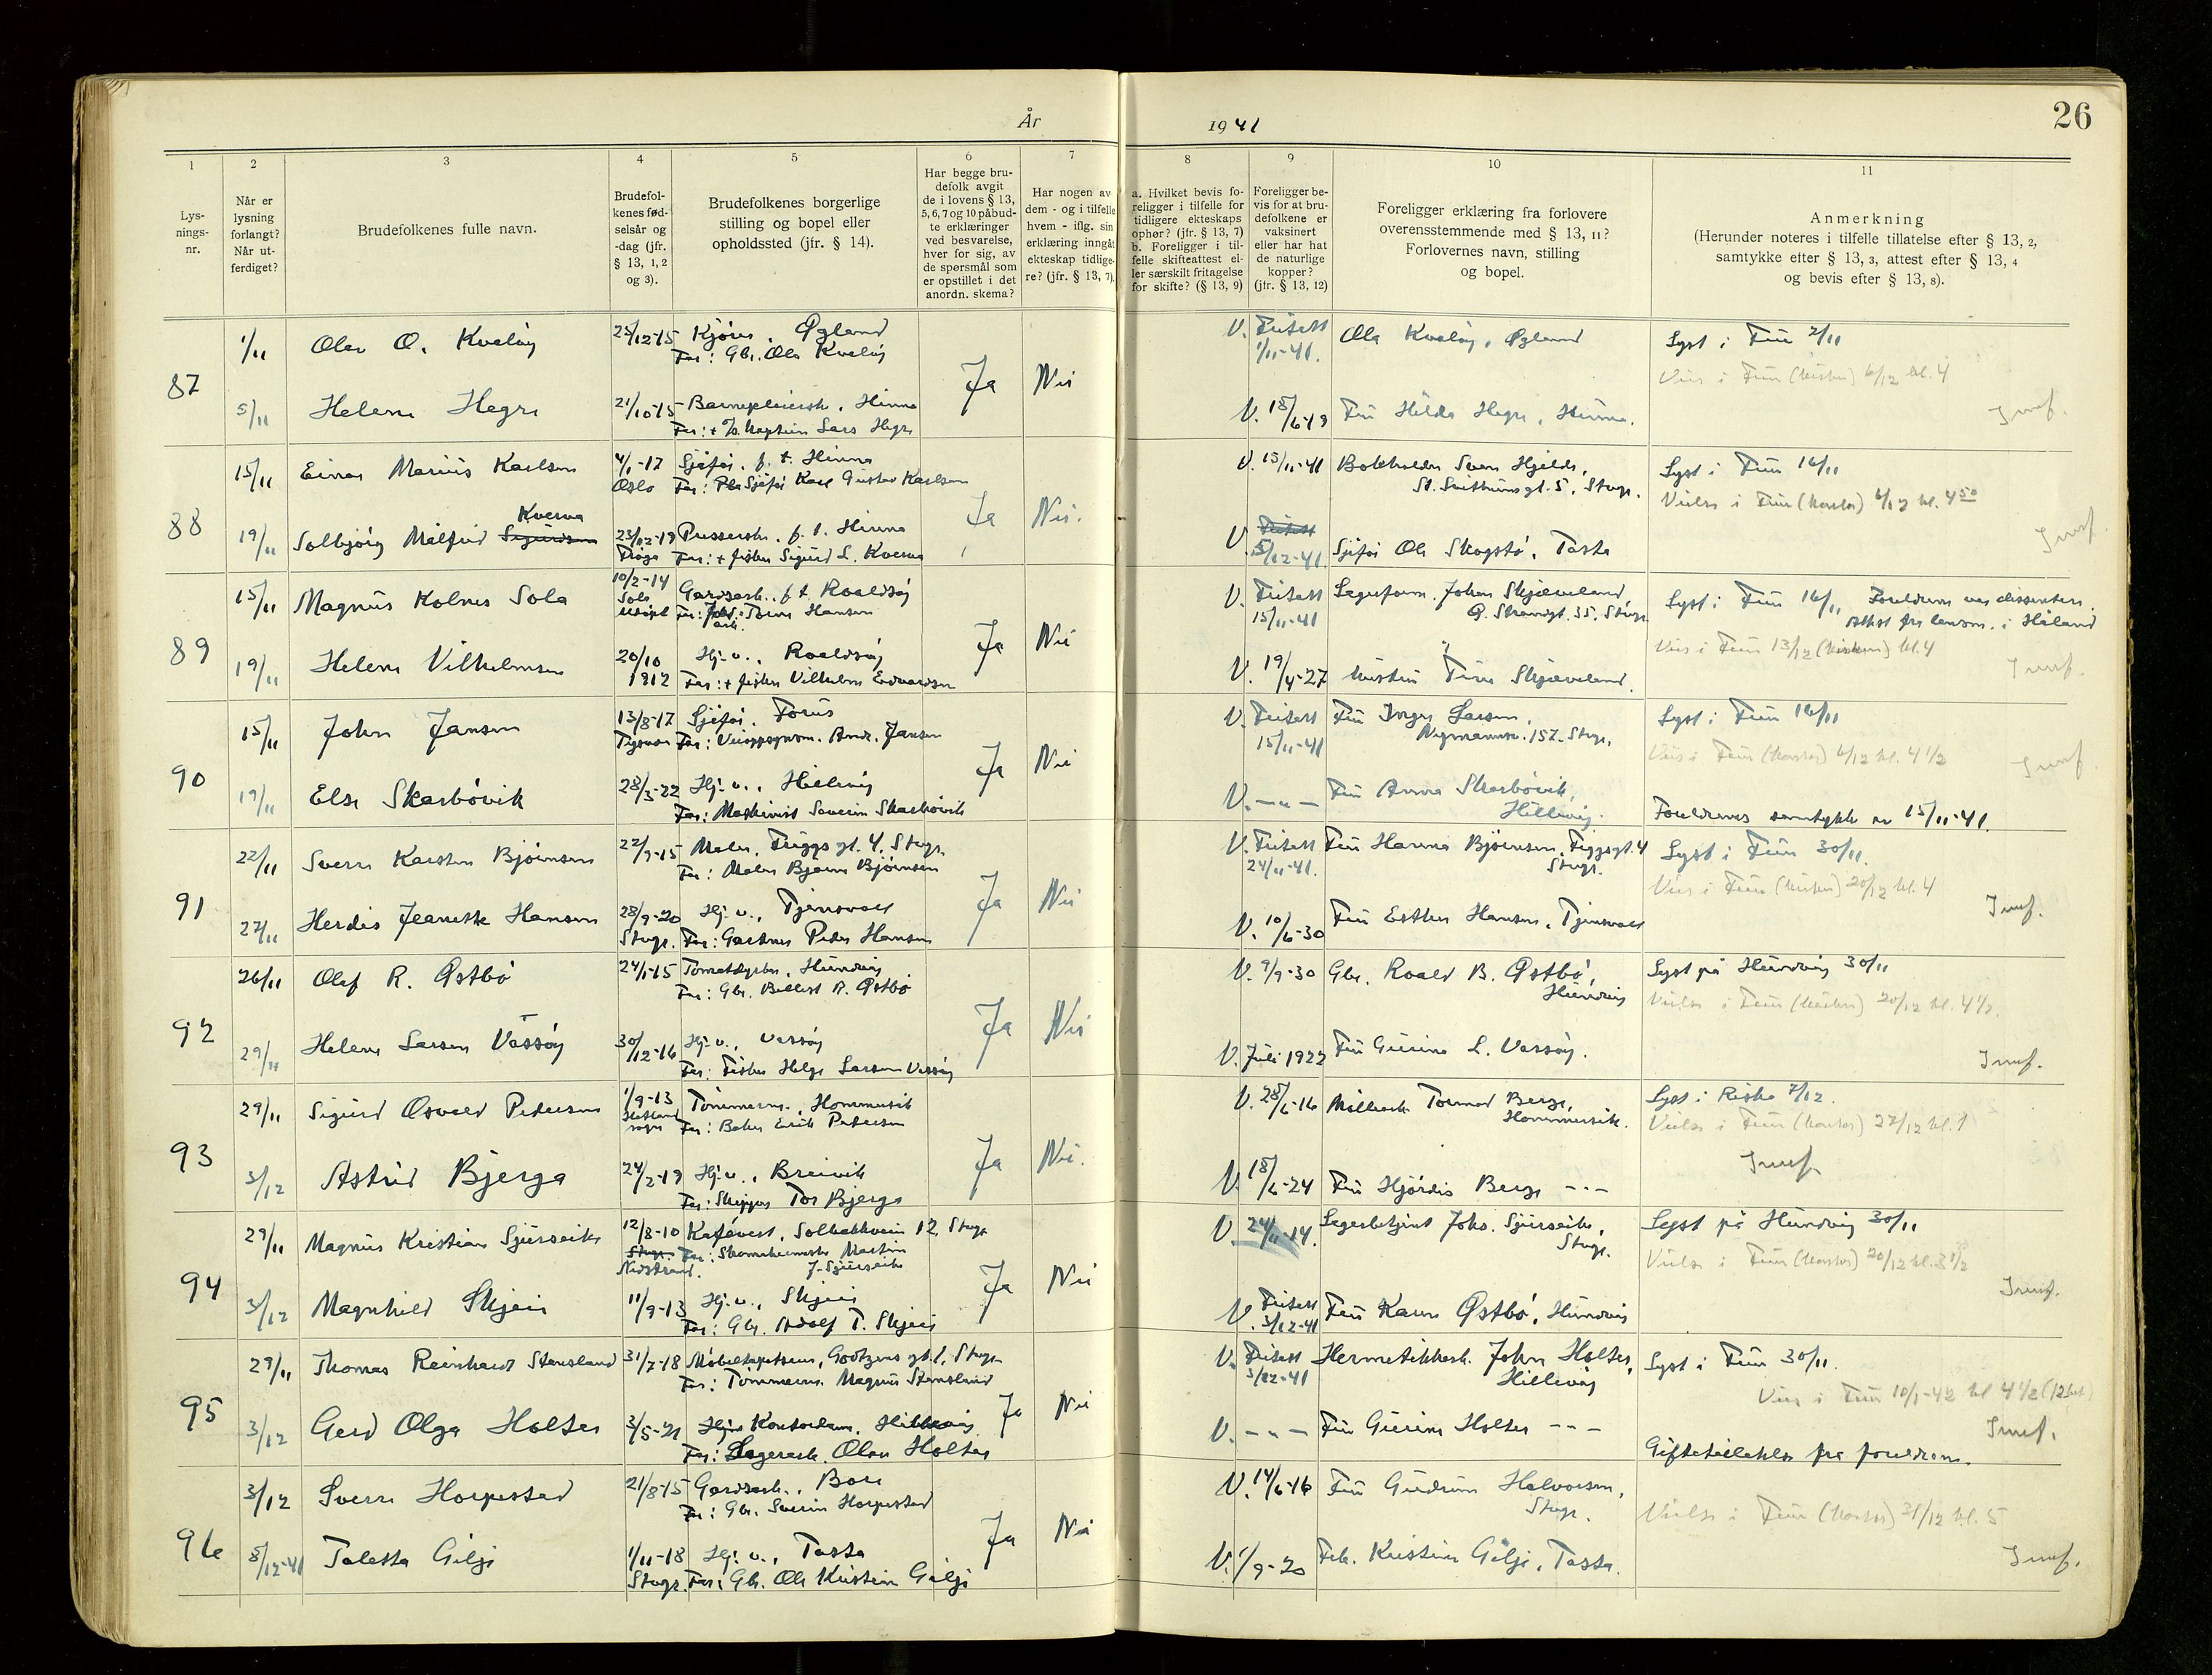 26
År 1941
1
2
3
4
5
6
7
8
9
10
11
Lys-
nings-
nr.
Når er
lysning
forlangt?
Når ut-
ferdiget?
Brudefolkenes fulle navn.
Brudefol-
kenes fød-
selsår og
-dag (jfr.
§ 13, 1, 2
og 3).
Brudefolkenes borgerlige
stilling og bopel eller
opholdssted (jfr. § 14).
Har begge bru-
defolk avgit
de i lovens § 13,
5, 6, 7 og 10 påbud-
te erklæringer
ved besvarelse,
hver for sig, av
de spørsmål som
er opstillet i det
anordn. skema?
Har nogen av
dem - og i tilfelle
hvem - iflg. sin
erklæring inngått
ekteskap tidlige-
re? (jfr. § 13, 7).
a. Hvilket bevis fo-
religger i tilfelle for
tidligere ekteskaps
ophør? (jfr. § 13, 7)
b. Foreligger i til-
felle skifteattest el-
ler særskilt fritagelse
for skifte? (§ 13, 9)
Foreligger be-
vis for at bru-
defolkene er
vaksinert
eller har hat
de naturlige
kopper?
(jfr. § 13, 12)
Foreligger erklæring fra forlovere
overensstemmende med § 13, 11?
Forlovernes navn, stilling
og bopel.
Anmerkning
(Herunder noteres i tilfelle tillatelse efter § 13, 2,
samtykke efter § 13, 3, attest efter § 13, 4
og bevis efter § 13, 8).
87
1/11 Olav O. Kvaløy 25/12-15 Øgland
Far: Gbr. Ola Kvaløy
V. Fritatt 1/11-41. Ola Kvaløy, Øgland
Lyst i Frue 2/11
Ja Nei
5/11 Helene Hegre 21/10-15 Hinna
Far: + Kaptein Lars Hegre
V. 18/6-19 Fru Hilda Hegre, Hinna.
88
15/11 Einar Marius Karlsen 4/1-17 Oslo
Sjåfør, f. t. Hinna
Far: Sjåfør Karl Gustav Karlsen
V. 15/11-41 Bokholder Svein Hjelde,
St. Svithunsgt. 5, Stvgr.
Lyst i Frue 16/11
Ja Nei.
19/11 Solbjørg Målfrid Sigurdson Kverva 23/12-19
Presserske, f. t. Hinna
Far: + fisker Sigurd L. Kverva
V. Fritatt 5/12-41 Sjåfør Ole Skogstø, Tasta
89
15/11 Magnus Kolnes Sola 10/2-14 Sola
Gardsarb., f. t. Roaldsøy
V. Fritatt 15/11-41 Johan Skjæveland,
Ø. Strandgt. 35, Stvgr.
Lyst i Frue 16/11 Foreldrene var dissentere.
Attest fra lensm. i Håland
Vies i Frue 13/12 (kirken) kl. 4
Ja Nei
19/11 Helene Vilhelmsen 20/10 1912
Hj. v., Roaldsøy
Far: + fisker Vilhelm Edvardsen
V. 19/4-27 Skjæveland
90
15/11 John Jansen 13/8-17
Sjåfør, Forus
V. Fritatt 15/11-41 Fru Inger Larsen,
Nymannsv. 157, Stvgr.
Lyst i Frue 16/11
Vies i Frue (kontor) 6/12 kl. 4 1/2
Ja Nei
19/11 Else Skarbøvik 28/3-22
Hj. v., Hillevåg
Far: Maskinist Severin Skarbøvik
V. -"- Fru Anna Skarbøvik, Hillevåg.
Foreldrenes samtykke av 15/11-41.
91
22/11 Sverre Karsten Bjørnsen 22/9-15
Maler, Friggs gt. 4, Stvgr.
Far: Maler Bjarne Bjørnsen
V. Fritatt 24/11-41. Fru Hanna Bjørnsen, Friggsgt. 4 Stvgr.
Lyst i Frue 30/11.
Vies i Frue (kirken) 20/12 kl. 4
Ja Nei
27/11 Herdis Jeanette Hansen 28/9-20 Stvgr.
Hj. v., Tjensvoll
Far: Gartner Peder Hansen
V. 10/6-30 Fru Esther Hansen, Tjensvoll
92
26/11 Olaf R. Østbø 24/1-15
Tomatdyrker, Hundvåg
Far: Gbr. R. Østbø
V. 9/9-30 Gbr. Roald B. Østbø, Hundvåg
Lyst på Hundvåg 30/11
Vielse i Frue (kirken) 20/12 kl. 4 1/2.
Ja Nei
29/11 Helene Larsen Vassøy 30/12-16
Hj. v., Vassøy
Far: Fisker Helge Larsen Vassøy
V. Juli 1922 Fru Gurine L. Vassøy.
93
29/11 Sigurd Osvald Pedersen 1/9-13
Tømmerm., Hommersåk
Far: Baker Erik Pedersen
V. 28/6-16 Tormod Berge, Hommersåk.
Lyst i Riska 7/12.
Vielse i Frue (kontor) 27/12 kl. 1
Ja Nei.
3/12 Astrid Bjerga 24/2-19
Hj. v., Breivik
Far: Skipper Tor Bjerga
V. 18/6-24 Fru Hjørdis Berge -"-
94
29/11 Magnus Kristian Sjurseike 12/8-10 Stvgr. Nedstrand.
Kafévert, Solbakkveien 12, Stvgr.
V. 24/11-14. Lagerbetjent Johs. Sjurseike, Stvgr.
Lyst på Hundvåg 30/11
Vielse i Frue (kontor) 20/12 kl. 3 1/2
Ja Nei
3/12 Magnhild Skjeie 11/9-13
Hj. v., Skjeie
Far: Gbr. Adolf T. Skjeie
V. Fritatt 3/12-41 Fru Karen Østbø, Hundvåg
95
29/11 Thomas Reinhardt Stensland 31/7-18
Møbeltapetserer, Stvgr.
Far: Tømmerm. Magnus Stensland
V. Fritatt 3/12-41 Hermetikkarb. John Holter, Hillevåg
Lyst i Frue 30/11.
Vies i Frue 10/1-42 kl 4 1/2
Ja Nei
3/12 Gerd Olga Holter 3/5-21
Kontordame, Hillevåg
Far: Lagerarb. Olav Holter
V. -"- Fru Gurine Holter -"-
Giftetillatelse fra foreldrene.
96
3/12 Sverre Horpestad 21/8-15
Gardsarb., Bore
Far: Gbr. Sverin Horpestad
V. 14/6-16 Fru Gudrun Halvorsen, Stvgr.
Vielse i Frue (kontor) 31/12 kl. 5
Ja Nei
8/12-41 Taletta Gilje 1/11-18 Stvgr.
Hj. v., Tasta
Far: Gbr. Ole Kristian Gilje
V. 1/9-20 Frk. Kristine Gilje, Tasta.